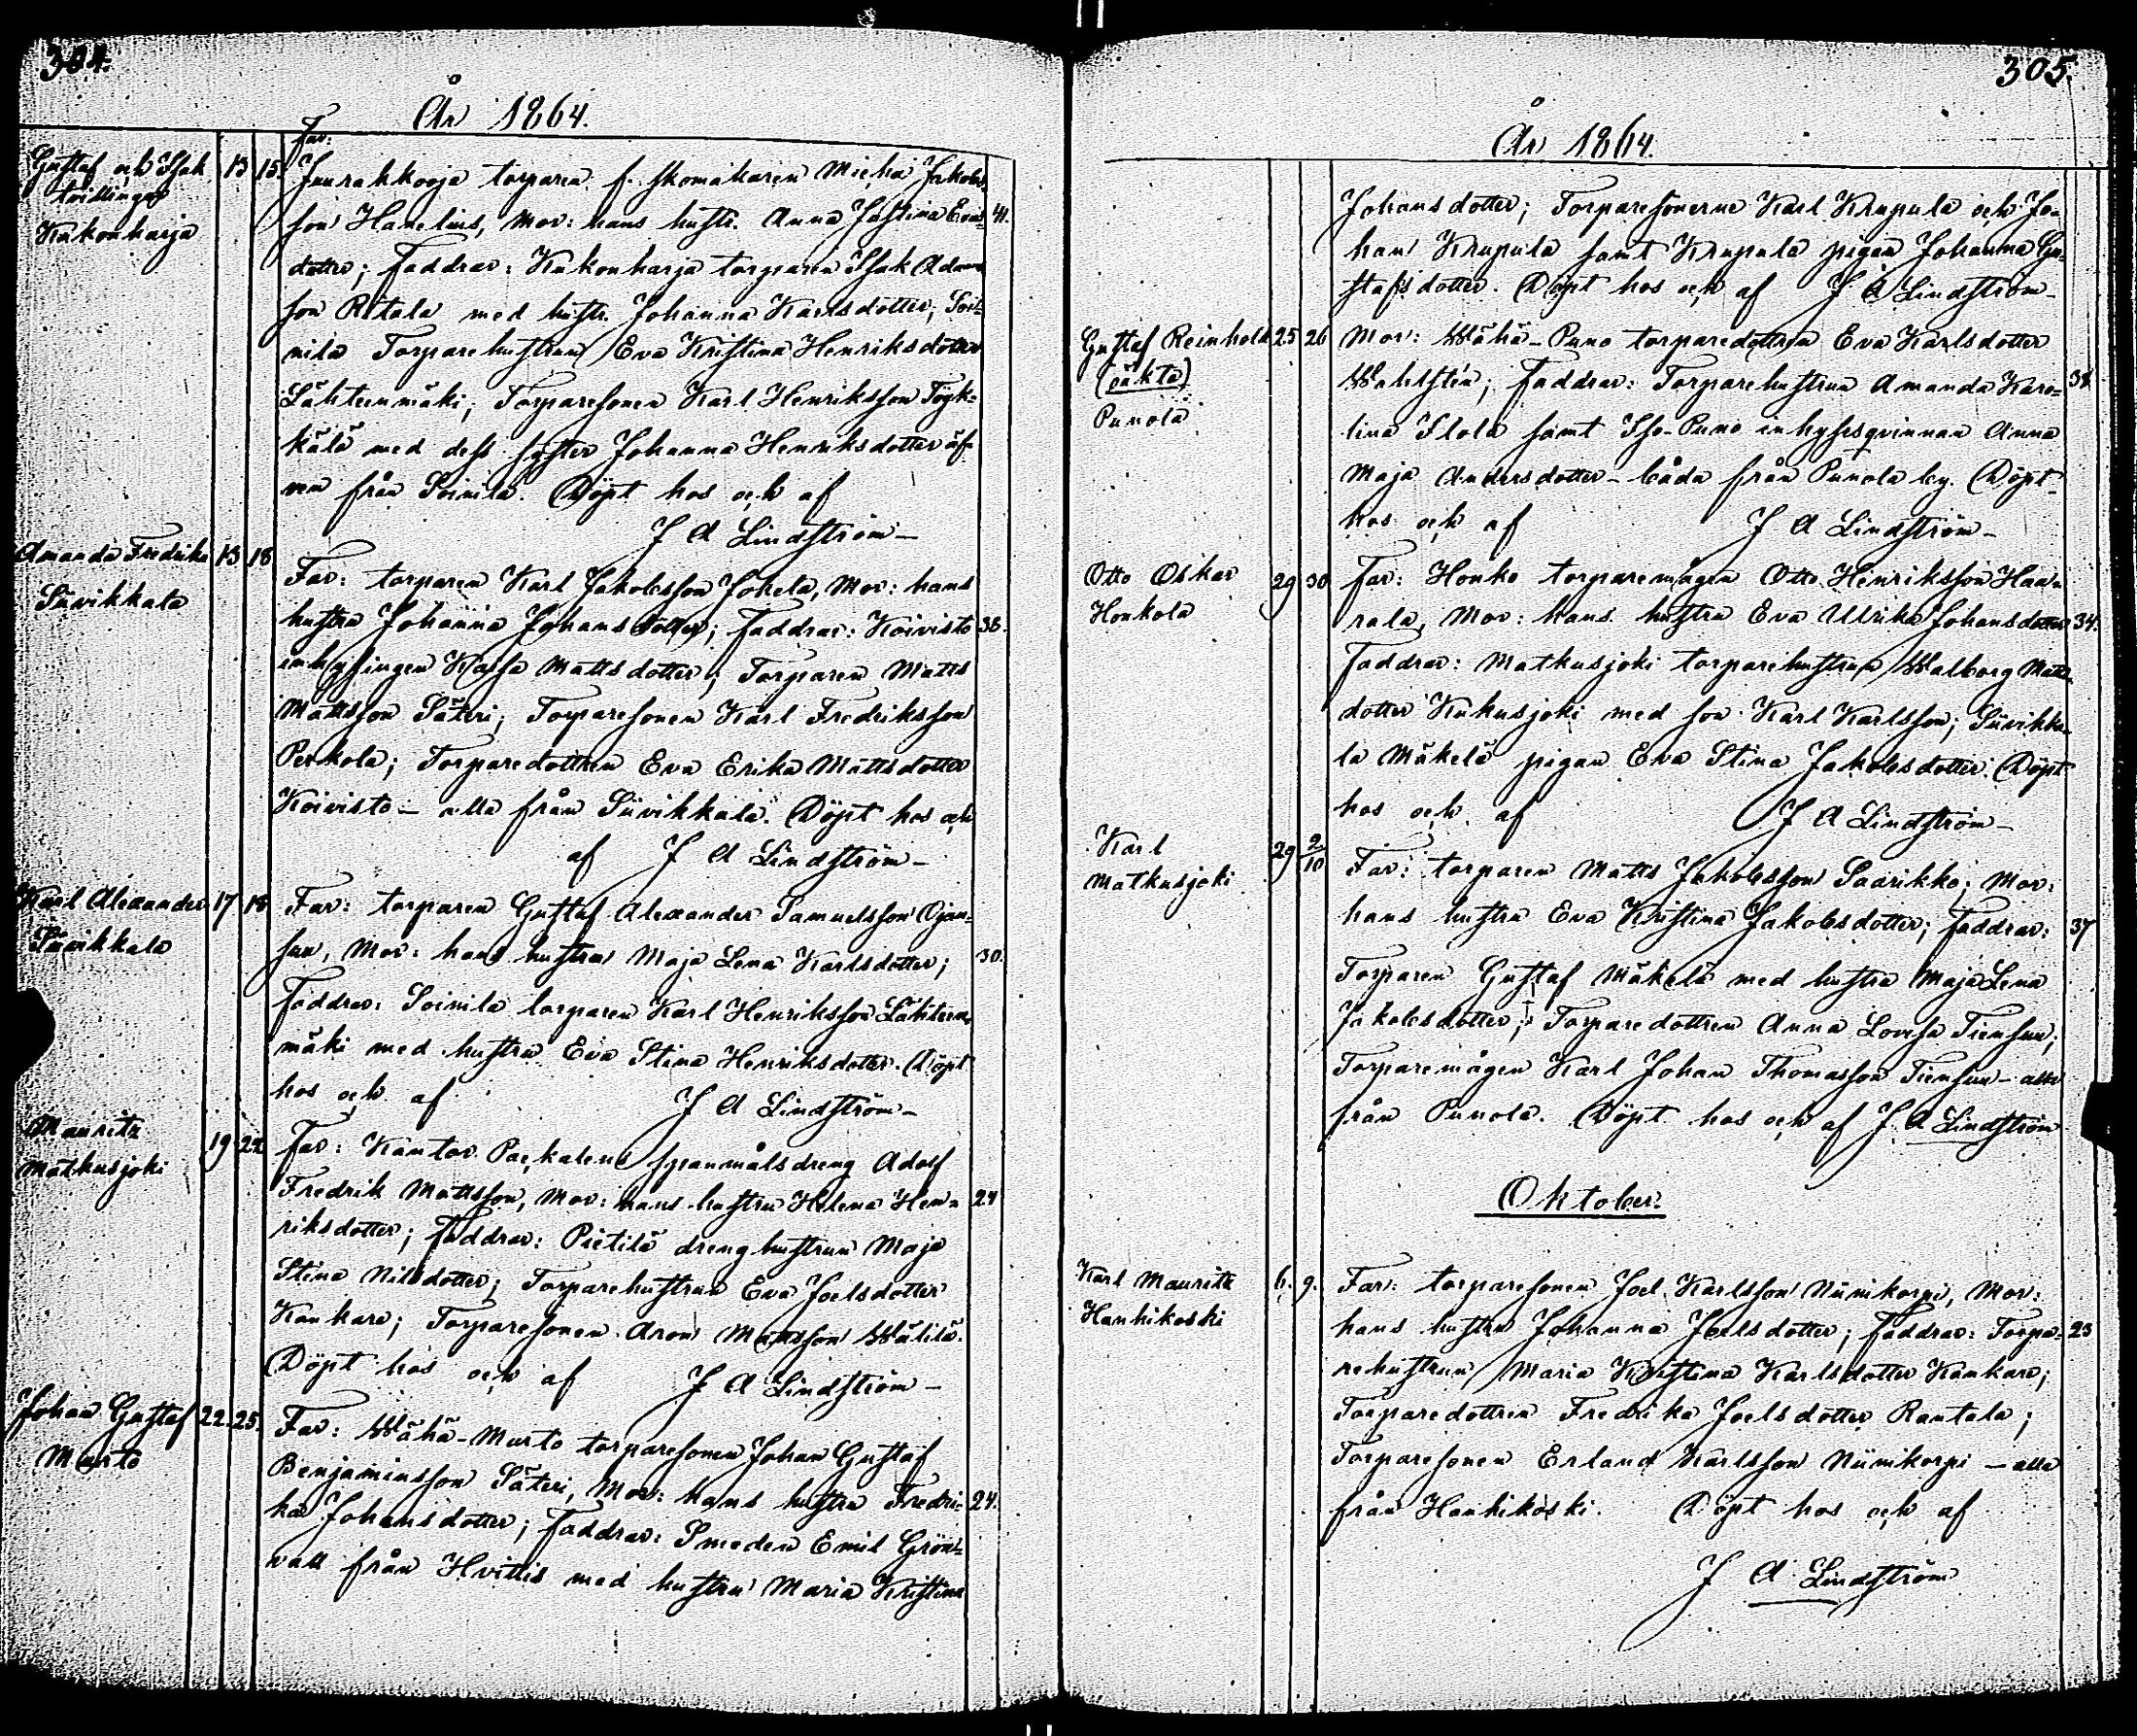 304.
År 1864.
Gustaf och Isak
tvillingar
Kukonharja
13 15.
Far:
Juurakkooja torparen f. skomakaren Micha Jakobs-
son Hanelius, Mor: hans hustr. Anna Justina Eriks- 41.
dotter; Faddrar: Kukonharja torparen Isak Adams
son Ritala med hustr. Johanna Karlsdotter; Soi-
nila Torparehustrun Eva Kristina Henriksdotter
Lähteenmäki; Torparesonen Karl Henriksson Töyk-
kälä med dess syster Johanna Henriksdotter äf-
ven från Soinila. Döpt hos och af
J A Lindström–
Amanda Fredrika 13 18
Siivikkala
Far: torparen Karl Jakobsson Jokela, Mor: hans
hustru Johanna Johansdotter; Faddrar: Koivisto 36.
inhysingen Kajsa Mattsdotter; Torparen Matts
Mattsson Säteri; Torparesonen Karl Fredriksson
Perkola; Torparedottren Eva Erika Mattsdotter
Koivisto – alla från Siivikkala. Döpt hos och
af J A Lindström–
Karl Alexander 17 18
Siivikkala
Far: torparen Gustaf Alexander Samuelsson Ojan-
suu, Mor: hans hustru Maja Lena Karlsdotter; 30.
Faddrar: Soinila torparen Karl Henriksson Lähteen-
mäki med hustru Eva Stina Henriksdotter. Döpt
hos och af J A Lindström–
Mauritz
Matkusjoki
19 22
Far: Kantor Packalens spanmålsdreng Adolf
Fredrik Mattsson, Mor: hans hustru Helena Hen- 24
riksdotter; Faddrar: Pietilä drenghustrun Maja
Stina Nilsdotter; Torparehustrun Eva Joelsdotter
Kankare; Torparesonen Aron Mattsson Wälilä.
Döpt hos och af J A Lindström–
Johan Gustaf 22. 25.
Murto
Far: Wähä-Murto torparesonen Johan Gustaf
Benjaminsson Säteri, Mor: hans hustru Fredri- 24.
ka Johansdotter; Faddrar: Smeden Emil Grön-
vall från Hvittis med hustru Maria Kristina
305.
År 1864.
Johansdotter; Torparesönerne Karl Krupula och Jo-
han Krupula samt Krupula pigan Johanna Gu-
stafsdotter. Döpt hos och af J A Lindström–
Gustaf Reinhold 25 26
(oäkta)
Punola
Mor: Wähä-Puno torparedottren Eva Karlsdotter
Wahlstén; Faddrar: Torparehustrun Amanda Karo- 38
lina Flola samt Iso-Puno inhysesqvinnan Anna
Maja Andersdotter – båda från Punola by. Döpt
hos och af J A Lindström–
Otto Oskar 29 30
Honkola
Far: Honko torparemågen Otto Henriksson Haa-
rala, Mor: hans hustru Eva Ulrika Johansdotter 34.
Faddrar: Matkusjoki torparehustrun Walborg Matts-
dotter Kukusjoki med son Karl Karlsson; Siivikka-
la Mäkelä pigan Eva Stina Jakobsdotter. Döpt
hos och af J A Lindström–
Karl
Matkusjoki
29 2/10
Far: torparen Matts Jakobsson Saarikko; Mor:
hans hustru Eva Kristina Jakobsdotter; Faddrar: 37
Torparen Gustaf Mäkelä med hustru Maja Lena
Jakobsdotter; Torparedottren Anna Lovisa Tiensuu;
Torparemågen Karl Johan Thomasson Tiensuu – alla
från Punola. Döpt hos och af J. A Lindström
Oktober.
Karl Mauritz 6. 9.
Hanhikoski
Far: torparesonen Joel Karlsson Niinikorpi, Mor:
hans hustru Johanna Joelsdotter; Faddrar: Torpa- 23
rehustrun Maria Kristina Karlsdotter Kankare;
Torparedottren Fredrika Joelsdotter Rantala;
Torparesonen Erland Karlsson Niinikorpi – alla
från Hanhikoski. Döpt hos och af
J A Lindström